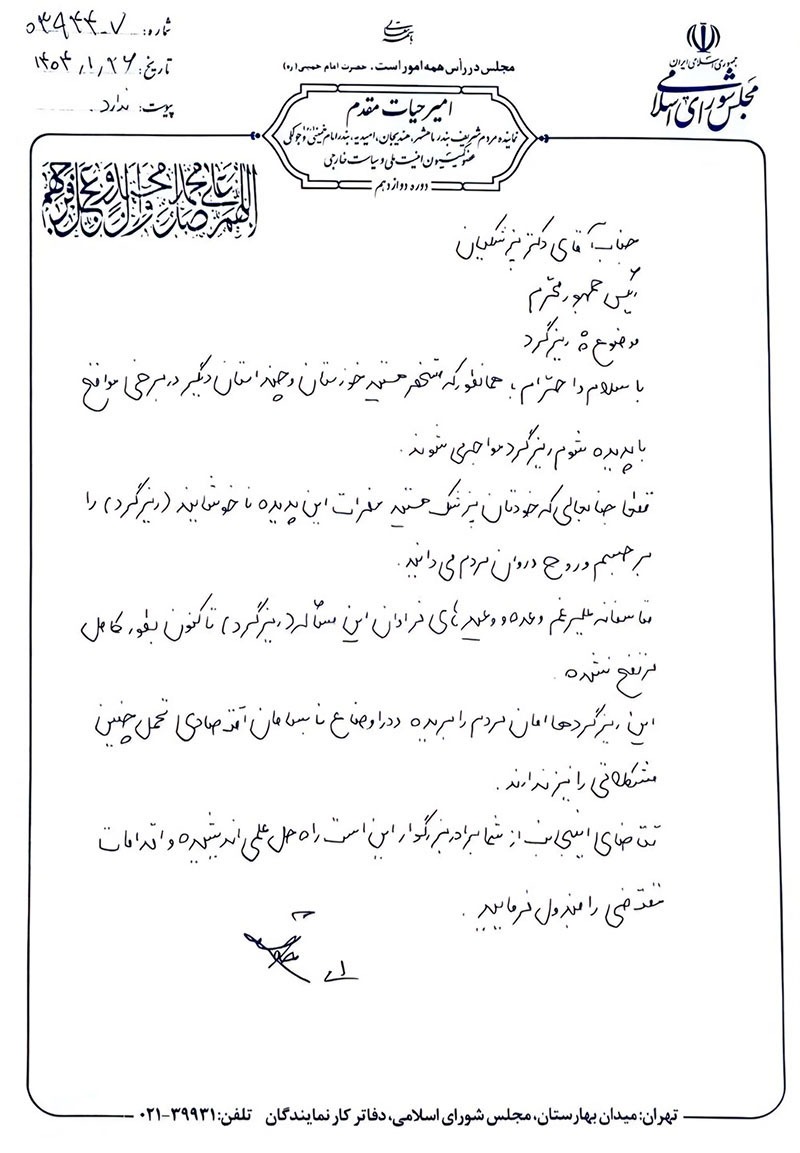 شماره: ۰۳۹۴۴۰۷
تاریخ: ۱۴۰۴/۱/۲۶
پیوست: ندارد
باسمه تعالی
مجلس در رأس همه امور است. حضرت امام خمینی (ره)
جمهوری اسلامی ایران
مجلس شورای اسلامی
امیر حیات مقدم
نماینده مردم شریف بندر ماهشهر، هندیجان، امیدیه، بندر امام خمینی (ره) و چوئبده
عضو کمیسیون امنیت ملی و سیاست خارجی
دوره دوازدهم
اللهم صل علی محمد و آل محمد و عجل فرجهم
جناب آقای دکتر پزشکیان
رئیس جمهور محترم
موضوع: ریزگرد
با سلام و احترام، همانطور که مستحضر هستید خوزستان و چند استان دیگر در برخی مواقع
با پدیده شوم ریزگرد مواجه می شوند.
قطعا جنابعالی که خودتان پزشک هستید مضرات این پدیده ناخوشایند (ریزگرد) را
بر جسم و روح و روان مردم می دانید.
متاسفانه علیرغم وعده و وعید های فراوان این مسأله (ریزگرد) تاکنون بطور کامل
مرتفع نشده.
این ریزگردها امان مردم را بریده و در اوضاع نابسامان اقتصادی تحمل چنین
مشکلاتی را نیز ندارند.
تقاضای اینجانب از شما برادر بزرگوار این است راه حل علمی اندیشیده و اقدامات
مقتضی را مبذول فرمایید.
تهران: میدان بهارستان، مجلس شورای اسلامی، دفاتر کار نمایندگان تلفن: ۳۹۹۳۱-۰۲۱